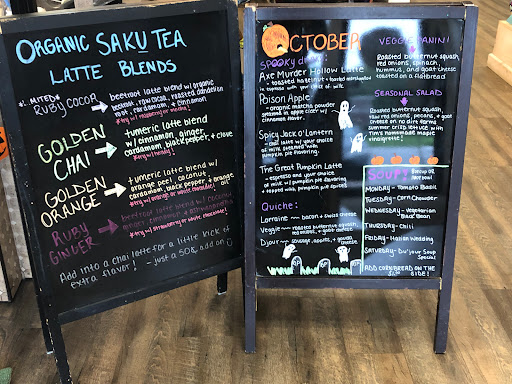 ORGANIC SAKU TEA
LATTE BLENDS
RUBY COCOA
beetroot latte blend w/ organic
beetroot, raw cocoa, roasted dandelion
root, cardamom, + cinnamon
GOLDEN
CHAI
tumeric latte blend
w/ cinnamon, ginger,
cardamom, black pepper, + clove
GOLDEN
ORANGE
tumeric latte blend w/
orange peel, coconut,
cardamom, black pepper + orange
oil
RUBY
GINGER
beetroot latte blend w/ coconut
#try w/ strawberry or white chocolate!
Add into a chai latte for a little kick of
extra flavor! - just a 50¢ add on
OCTOBER
SPOOKY
Axe Murder Hollow Latte
- toasted hazelnut + toasted marshmallow
in espresso with your choice of milk
Poison Apple
- organic matcha powder
steamed in apple cider w/
cinnamon flavor.
Spicy Jack o'Lantern
- chai latte w/ your choice
of milk steamed with
pumpkin pie flavoring.
The Great Pumpkin Latte
- espresso and your choice
of milk w/ pumpkin pie flavoring
+ topped with pumpkin pie spices
Quiche:
Lorraine ~ bacon + swiss cheese
Veggie ~ roasted butternut squash,
red onions, + goat cheese
Djour ~ sausage, apples, + gouda
cheese
VEGGIE PANINI!
Roasted butternut squash,
red onions, spinach,
hummus, and goat cheese
toasted on a flatbread
SEASONAL SALAD
Roasted butternut squash,
raw red onions, pecans, + goat
cheese on no dirt farms
summer crisp lettuce with
Tim's homemade maple
vinaigrette!
SOUP!
MONDAY - Tomato Basil
TUESDAY - Corn Chowder
WEDNESDAY - Vegetarian
Black Bean
THURSDAY - Chili
FRIDAY - Italian Wedding
SATURDAY - Du'jour Soup
Special
ADD CORNBREAD ON THE
SIDE!